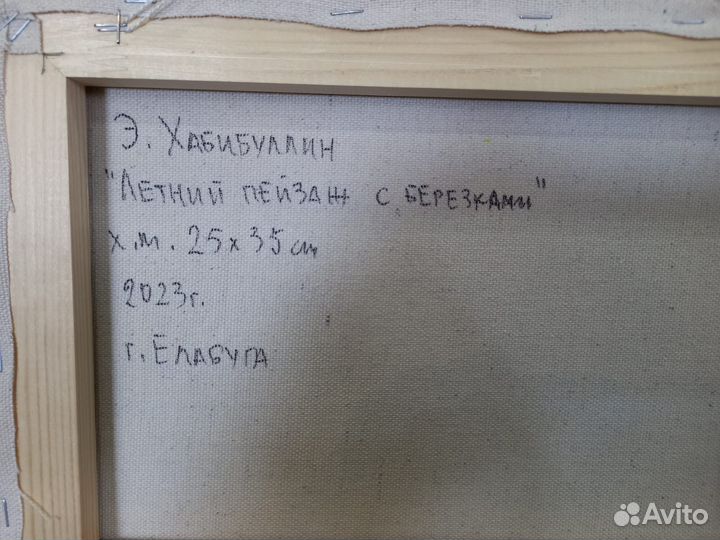 Э. Хабибуллин
"Летний пейзаж с березками"
х.м. 25х35 см
2023г.
г. Елабуга
Avito